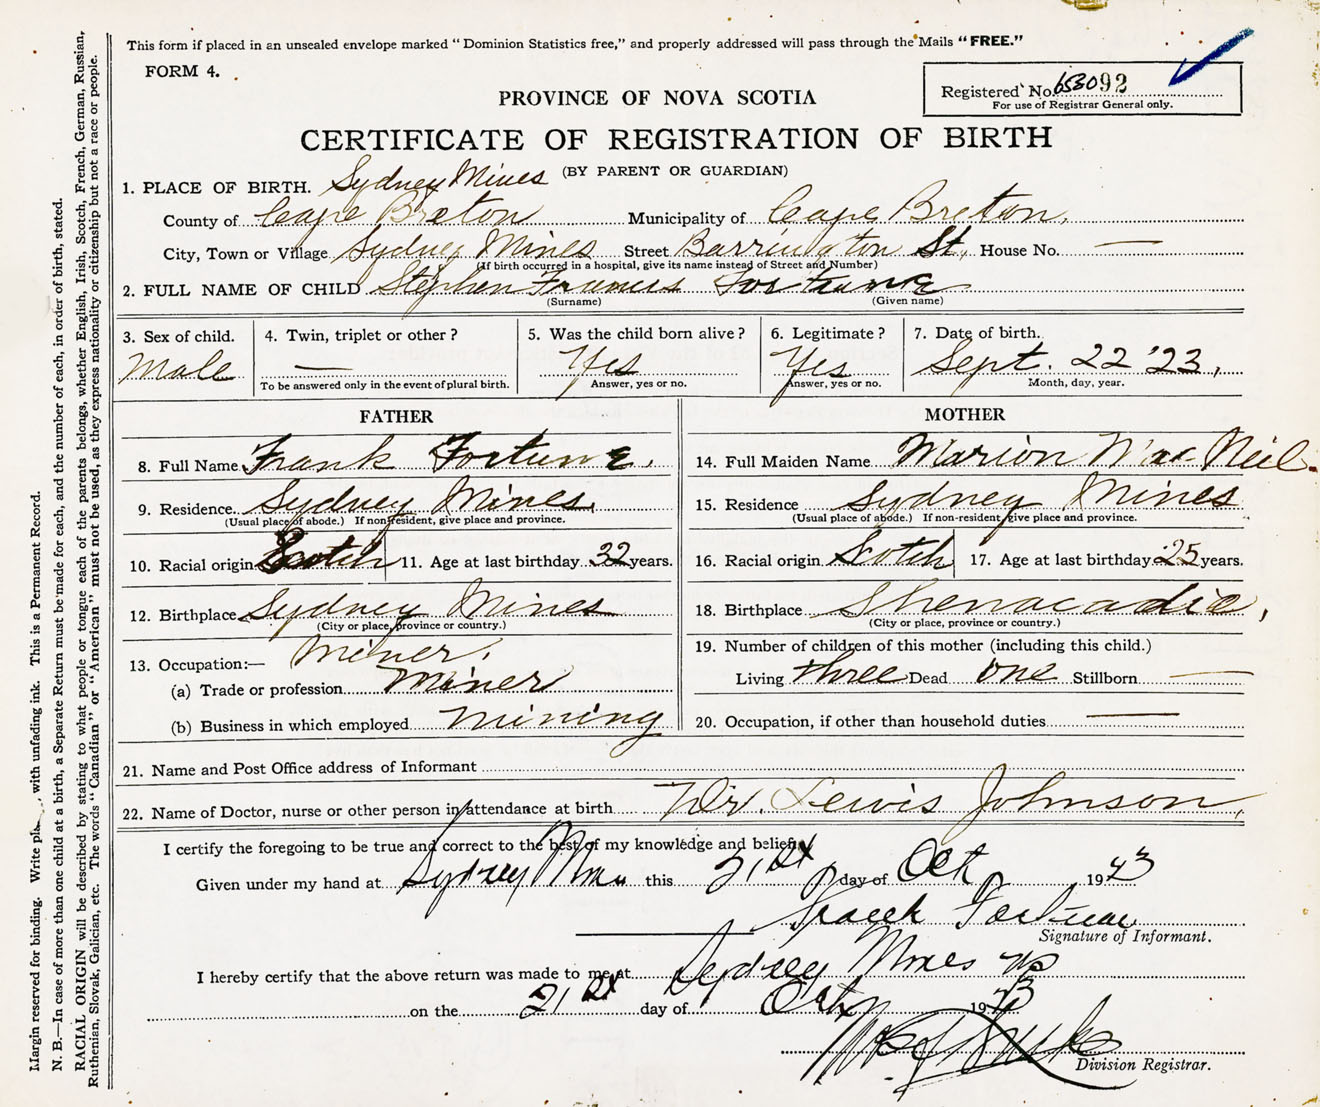 This form if placed in an unsealed envelope marked "Dominion Statistics free," and properly addressed will pass through the Mails "FREE."
FORM 4.
Registered No. 653092
For use of Registrar General only.
PROVINCE OF NOVA SCOTIA
CERTIFICATE OF REGISTRATION OF BIRTH
(BY PARENT OR GUARDIAN)
1. PLACE OF BIRTH. Sydney Mines
County of Cape Breton Municipality of Cape Breton,
City, Town or Village Sydney Mines Street Barrington St., House No. —
(If birth occurred in a hospital, give its name instead of Street and Number)
2. FULL NAME OF CHILD Stephen Francis Fortune
(Surname) (Given name)
3. Sex of child. 4. Twin, triplet or other? 5. Was the child born alive? 6. Legitimate? 7. Date of birth.
Male — Yes Yes Sept. 22 '23,
To be answered only in the event of plural birth. Answer, yes or no. Answer, yes or no. Month, day, year.
FATHER MOTHER
8. Full Name Frank Fortune, 14. Full Maiden Name Marion MacNeil.
9. Residence. Sydney Mines, 15. Residence Sydney Mines
(Usual place of abode.) If non-resident, give place and province. (Usual place of abode.) If non-resident, give place and province.
10. Racial origin Scotch 11. Age at last birthday 32 years. 16. Racial origin Scotch 17. Age at last birthday 25 years.
12. Birthplace Sydney Mines 18. Birthplace Shenacadie,
(City or place, province or country.) (City or place, province or country.)
13. Occupation:— Miner. 19. Number of children of this mother (including this child.)
(a) Trade or profession Miner Living three Dead one Stillborn —
(b) Business in which employed mining 20. Occupation, if other than household duties —
21. Name and Post Office address of Informant
22. Name of Doctor, nurse or other person in attendance at birth Dr. Lewis Johnson,
I certify the foregoing to be true and correct to the best of my knowledge and belief.
Given under my hand at Sydney Mines this 21st day of Oct 1923
Frank Fortune
Signature of Informant.
I hereby certify that the above return was made to me at Sydney Mines NS
on the 21st day of Oct 1923
Division Registrar.
Margin reserved for binding. Write with unfading ink. This is a Permanent Record.
N. B.—In case of more than one child at a birth, a Separate Return must be made for each, and the number of each, in order of birth, stated.
RACIAL ORIGIN will be described by stating to what people or tongue each of the parents belongs, whether English, Irish, Scotch, French, German, Russian,
Ruthenian, Slovak, Galician, etc. The words "Canadian" or "American" must not be used, as they express nationality or citizenship but not a race or people.